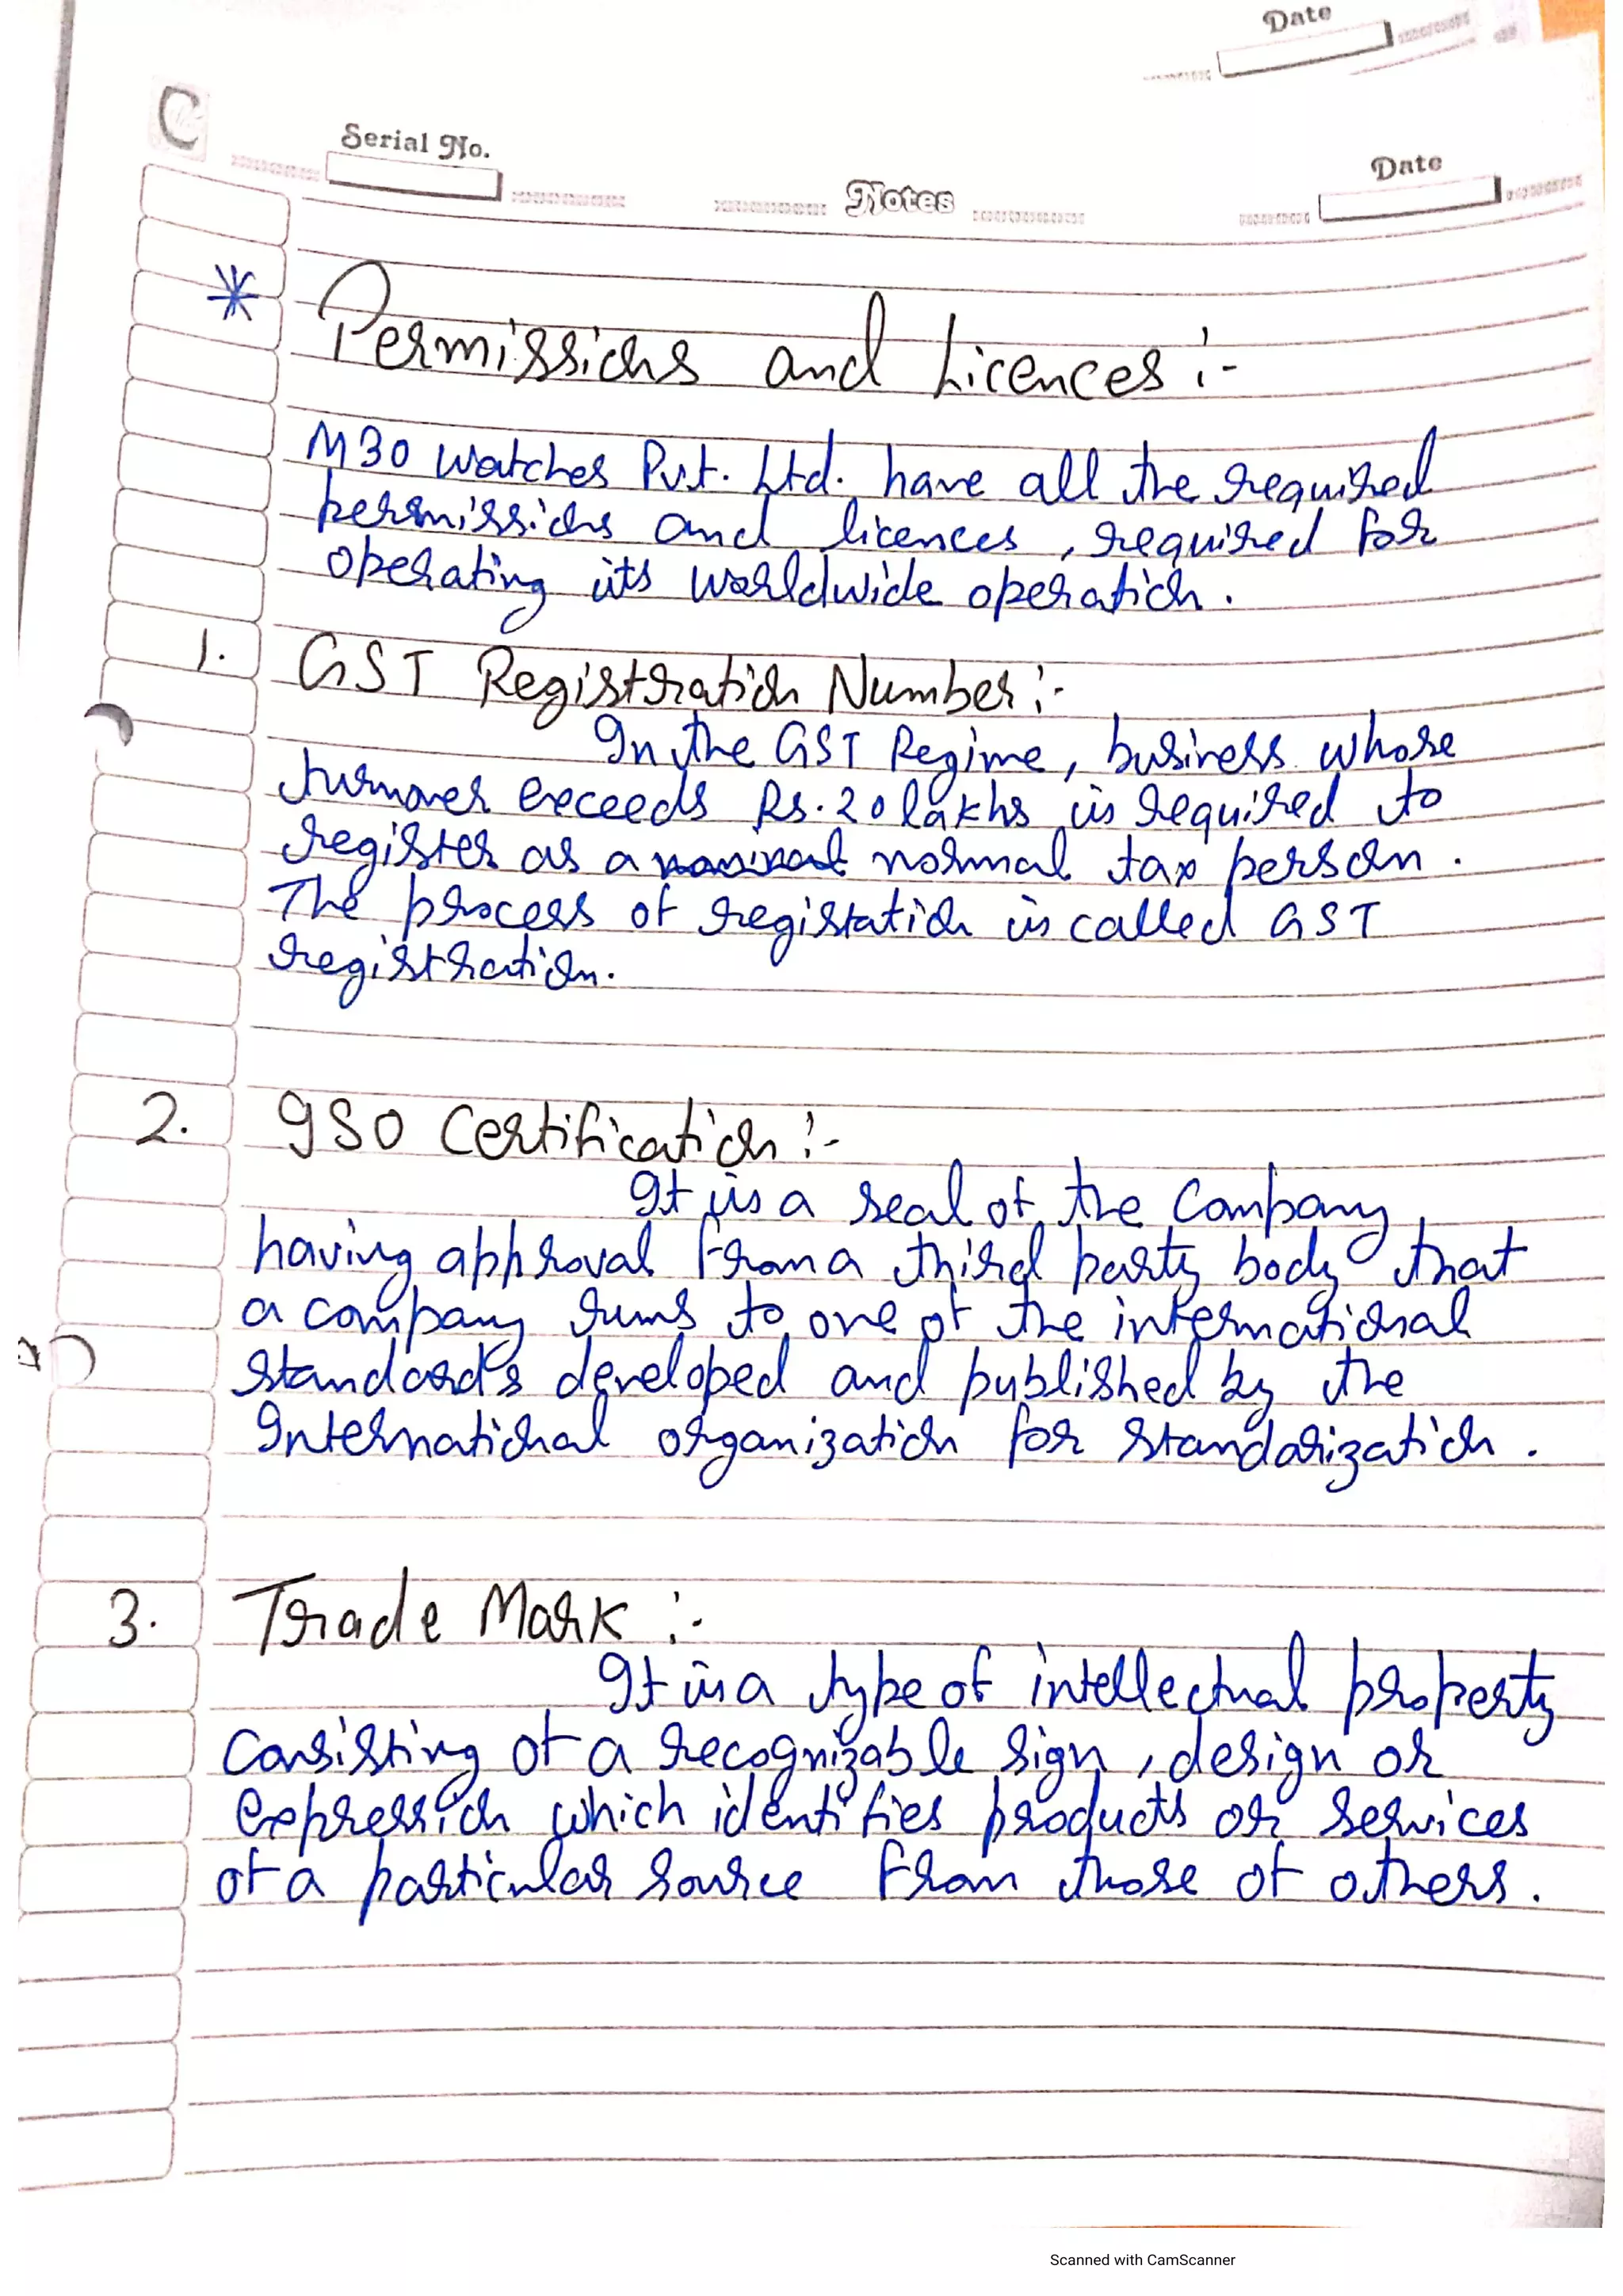 Date
C
Serial No.
Notes
Date
* Permissions and Licences :-
M30 Watches Pvt. Ltd. have all the required
permissions and licences, required for
operating its worldwide operation.
1. GST Registration Number :-
In the GST Regime, business whose
turnover exceeds Rs. 20 lakhs is required to
register as a normal tax person.
The process of registation is called GST
registration.
2. ISO Certification :-
It is a seal of the Company
having approval from a third party body that
a company runs to one of the international
standards developed and published by the
International organization for standarization.
3. Trade Mark :-
It is a type of intellectual property
consisting of a recognizable sign, design or
expression which identifies products or services
of a particular source from those of others.
Scanned with CamScanner